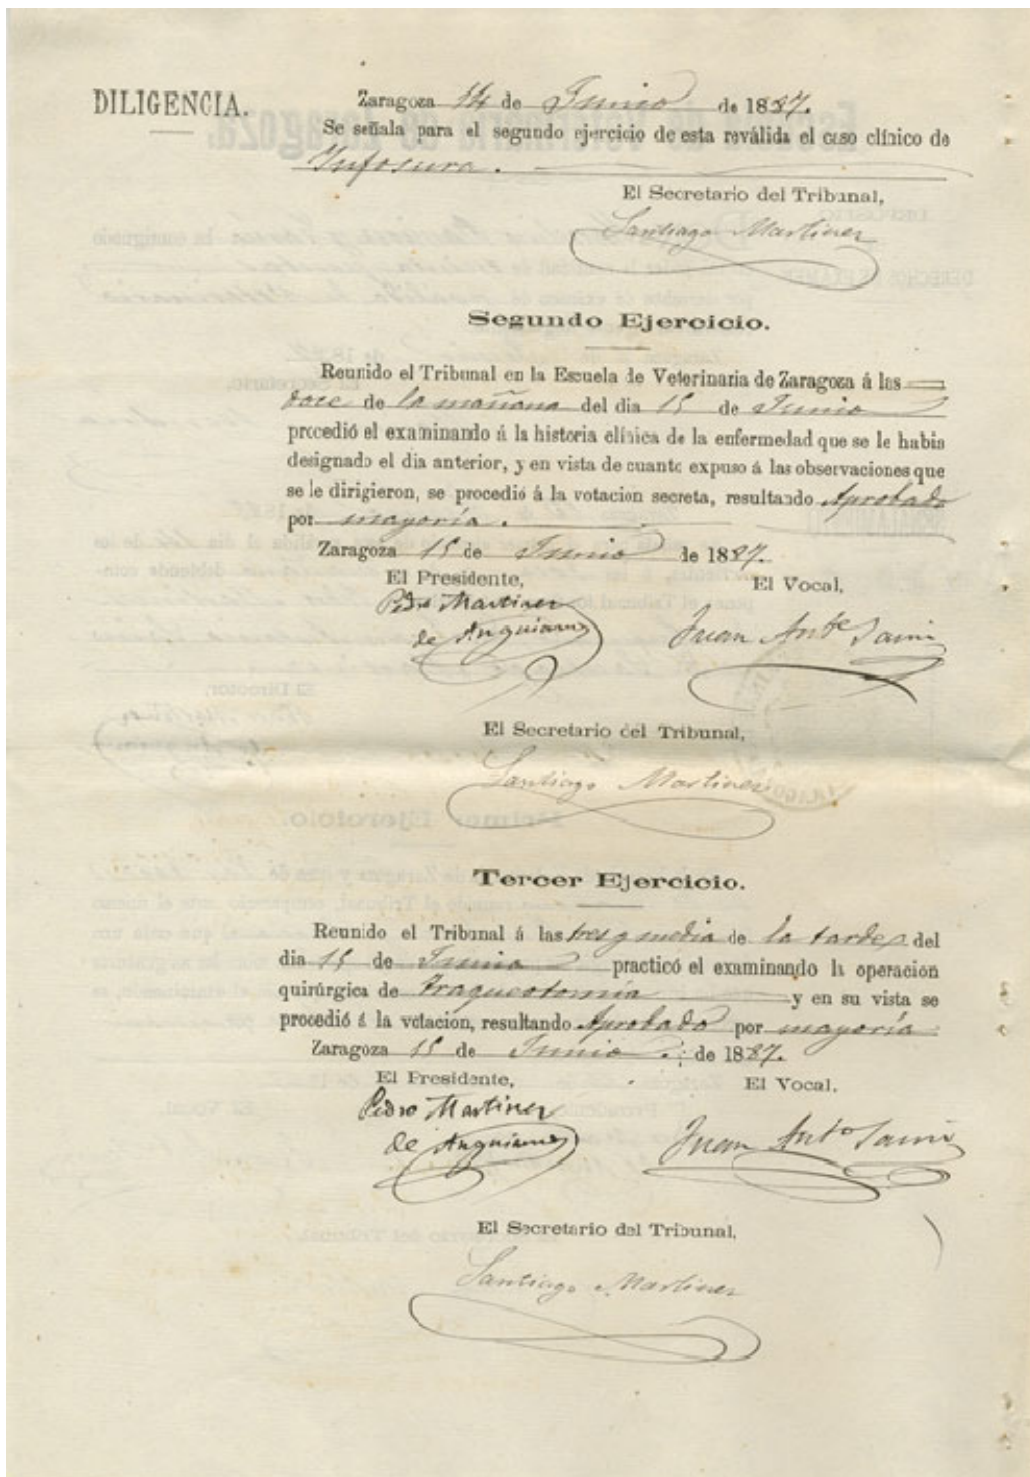 DILIGENCIA.
Zaragoza 14 de Junio de 1887.
Se señala para el segundo ejercicio de esta reválida el caso clínico de
Infosura.
El Secretario del Tribunal,
Santiago Martinez
Segundo Ejercicio.
Reunido el Tribunal en la Escuela de Veterinaria de Zaragoza á las
doce de la mañana del dia 15 de Junio
procedió el examinando á la historia clínica de la enfermedad que se le habia
designado el dia anterior, y en vista de cuanto expuso á las observaciones que
se le dirigieron, se procedió á la votacion secreta, resultando Aprobado
por mayoría.
Zaragoza 15 de Junio de 1887.
El Presidente, El Vocal,
Pedro Martinez
de Anguiano Juan Antº Sainz
El Secretario del Tribunal,
Santiago Martinez
Tercer Ejercicio.
Reunido el Tribunal á las tres y media de la tarde del
dia 15 de Junio practicó el examinando la operacion
quirúrgica de Traqueotomía y en su vista se
procedió á la votacion, resultando Aprobado por mayoría
Zaragoza 15 de Junio de 1887.
El Presidente, El Vocal,
Pedro Martinez
de Anguiano Juan Antº Sainz
El Secretario del Tribunal,
Santiago Martinez